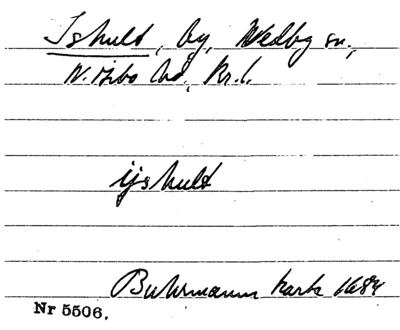 Ishult, by, Vedby sn.,
N. Åsbo hd, Kr. l.
ijshult
Buhrmanns karta 1684
Nr 5506.